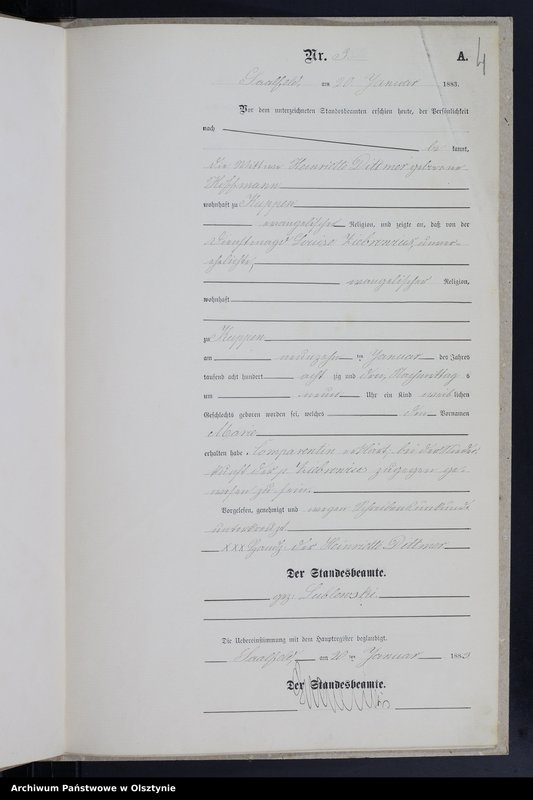 Nr. 3 A. 4
Saalfeld, am 20 Januar 1883.
Vor dem unterzeichneten Standesbeamten erschien heute, der Persönlichkeit
nach
be kannt,
die Wittwe Heinriette Dittmer geborene
Hoffmann
wohnhaft zu Kuppen
evangelischer Religion, und zeigte an, daß von der
Dienstmagd Louise, unver-
ehelichte,
evangelischer Religion,
wohnhaft
zu Kuppen
am neunzehn ten Januar des Jahres
tausend acht hundert acht zig und drei, Nachmittag s
um neun Uhr ein Kind weiblichen
Geschlechts geboren worden sei, welches den Vornamen
Marie
erhalten habe. Comparentin erklärt, bei der Nieder-
kunft der p. zugegen ge-
wesen zu sein.
Vorgelesen, genehmigt und wegen Schreibensunkunde
unterkreuzt
xxx Handz. der Heinriette Dittmer
Der Standesbeamte.
gez.
Die Uebereinstimmung mit dem Hauptregister beglaubigt.
Saalfeld, am 20 ten Januar 1883
Der Standesbeamte.
Archiwum Państwowe w Olsztynie